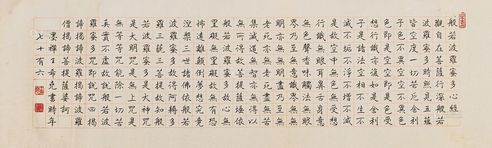 般若波羅蜜多心經
觀自在菩薩行深般若
波羅蜜多時照見五蘊
皆空度一切苦厄舍利
子色不異空空不異色
色即是空空即是色受
想行識亦復如是舍利
子是諸法空相不生不
滅不垢不淨不增不減
是故空中無色無受想
行識無眼耳鼻舌身意
無色聲香味觸法無眼
界乃至無意識界無無
明亦無無明盡乃至無
老死亦無老死盡無苦
集滅道無智亦無得以
無所得故菩提薩埵依
般若波羅蜜多故心無
罣礙無罣礙故無有恐
怖遠離顛倒夢想究竟
涅槃三世諸佛依般若
波羅蜜多故得阿耨多
羅三藐三菩提故知般
若波羅蜜多是大神咒
是大明咒是無上咒是
無等等咒能除一切苦
真實不虛故說般若波
羅蜜多咒即說咒曰揭
諦揭諦波羅揭諦波羅
僧揭諦菩提薩婆訶
墨禪王希堯書時年
七十有六